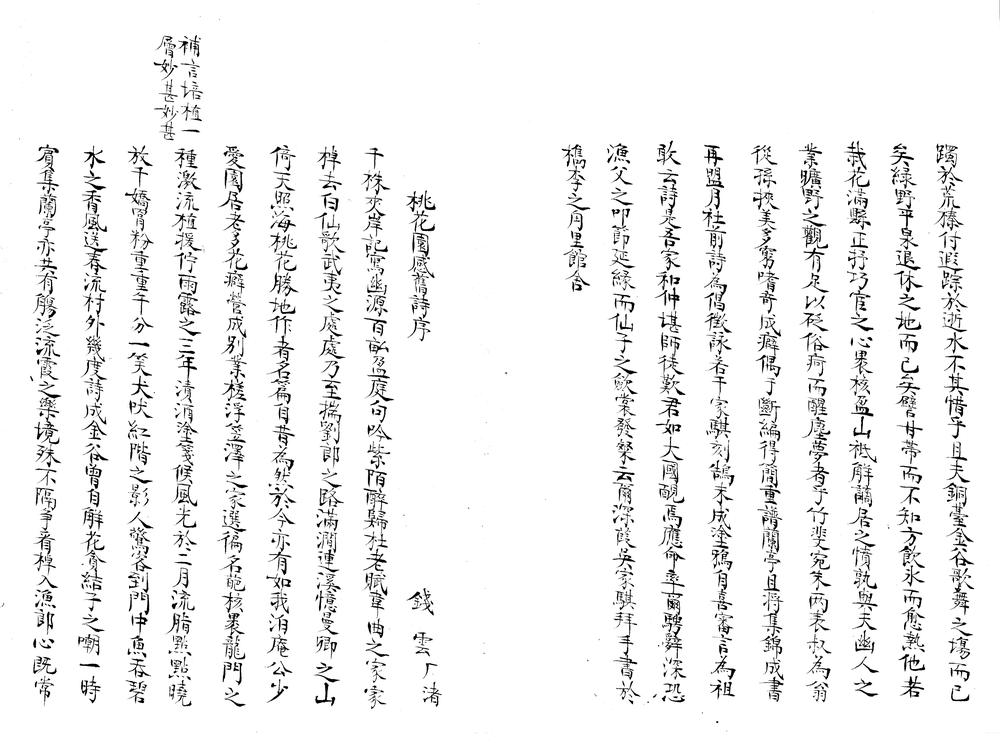 躅於荒榛付遐踪於逝水不其惜乎且夫銅臺金谷歌舞之塲而已
矣綠野平泉退休之地而已矣譬甘帶而不知方飲氷而愈熱他若
栽花滿縣正抒巧宦之心褁核盈山祇解謫居之憤孰與夫幽人之
業曠野之觀有足以砭俗疴而醒塵夢者乎竹斐宛朱兩表叔為翁
從孫挾美多窮嗜竒成癖偶于斷編得簡重譜蘭亭且將集錦成書
再盟月社前詩為倡徴詠若干家騏刻鵠未成塗鴉自喜審言為祖
敢云詩是吾家和仲堪師徒歎君如大國覼焉應命率爾騁辭深恐
漁父之叩節延緣而仙子之歛裳發粲云爾深葭吳家騏拜手書於
檇李之月里館舎
桃花園感舊詩序
錢雲厂渚
千株夾岸記寓幽源百畝盈庭句吟紫陌醉歸杜老賦韋曲之家家
棹去白仙歌武夷之處處乃至攜劉郎之路滿澗連溪憶曼卿之山
倚天照海桃花勝地作者名篇自昔為然於今亦有如我泊庵公少
愛園居老多花癖營成別業槎浮笠澤之家選徧名葩核褁龍門之
種激流植援佇雨露之三年漬涓塗箋候風光於二月流脂點點曉
放千嬌罥粉重重午分一笑犬吠紅階之影人驚客到門中魚吞碧
水之香風送春流村外幾度詩成金谷曾自解花貪結子之嘲一時
賓集蘭亭亦共有觴泛流霞之樂境殊不隔爭看棹入漁郎心旣常
補言培植一
層妙甚妙甚